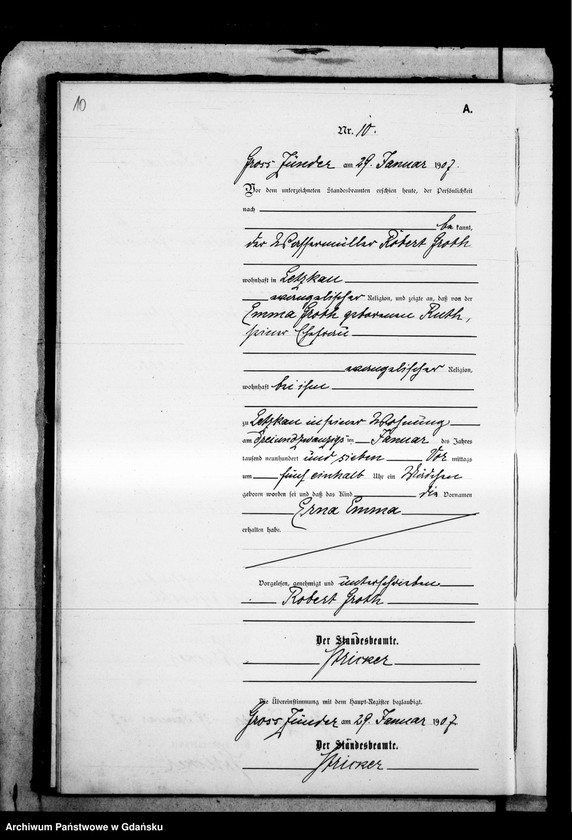 10
A.
Nr. 10.
Gross Zünder am 29. Januar 1907.
Vor dem unterzeichneten Standesbeamten erschien heute, der Persönlichkeit
nach
be kannt,
der Wassermüller Robert Groth
wohnhaft in Letzkau
evangelischer Religion, und zeigte an, daß von der
Emma Groth geborenen Ruth,
seiner Ehefrau
evangelischer Religion,
wohnhaft bei ihm
zu Letzkau in seiner Wohnung
am dreiundzwanzigsten Januar des Jahres
tausend neunhundert und sieben Vor mittags
um fünf einhalb Uhr ein Mädchen
geboren worden sei und daß das Kind die Vornamen
Erna Emma
erhalten habe.
Vorgelesen, genehmigt und unterschrieben
Robert Groth
Der Standesbeamte.
Stricker
Die Übereinstimmung mit dem Haupt-Register beglaubigt.
Gross Zünder am 29. Januar 1907.
Der Standesbeamte.
Stricker
Archiwum Państwowe w Gdańsku